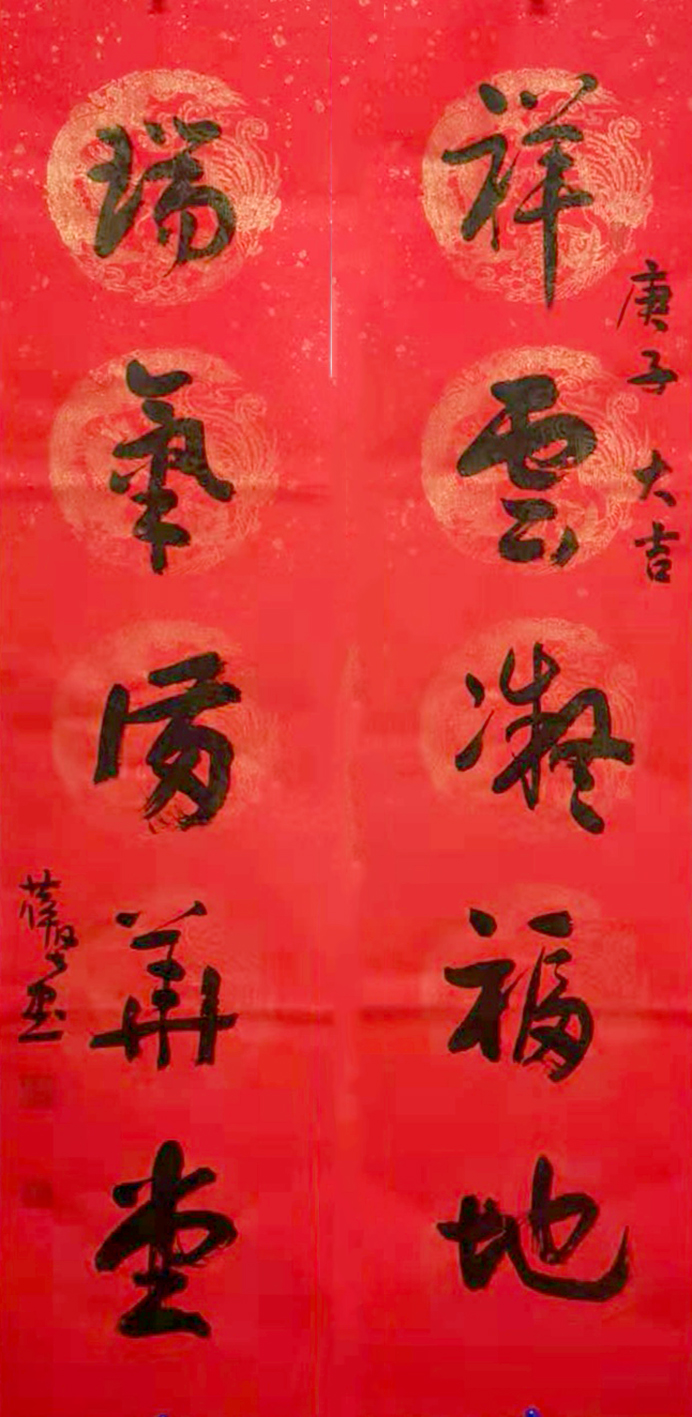 庚子大吉
祥雲凝福地
瑞氣滿華堂